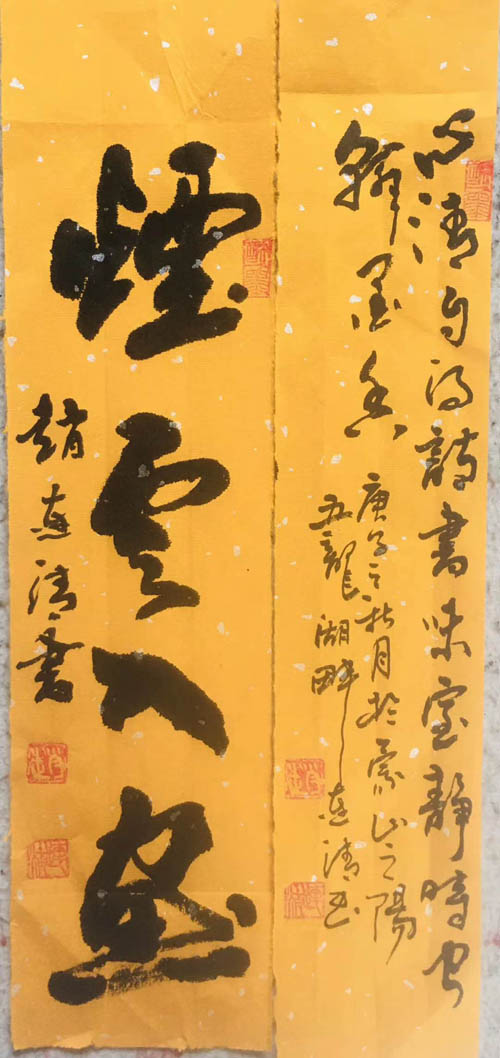 心清自得詩書味室靜時聞
翰墨香
庚子之秋月於蒙山之陽
五龍湖畔連清書
煙雲入畫
趙連清書